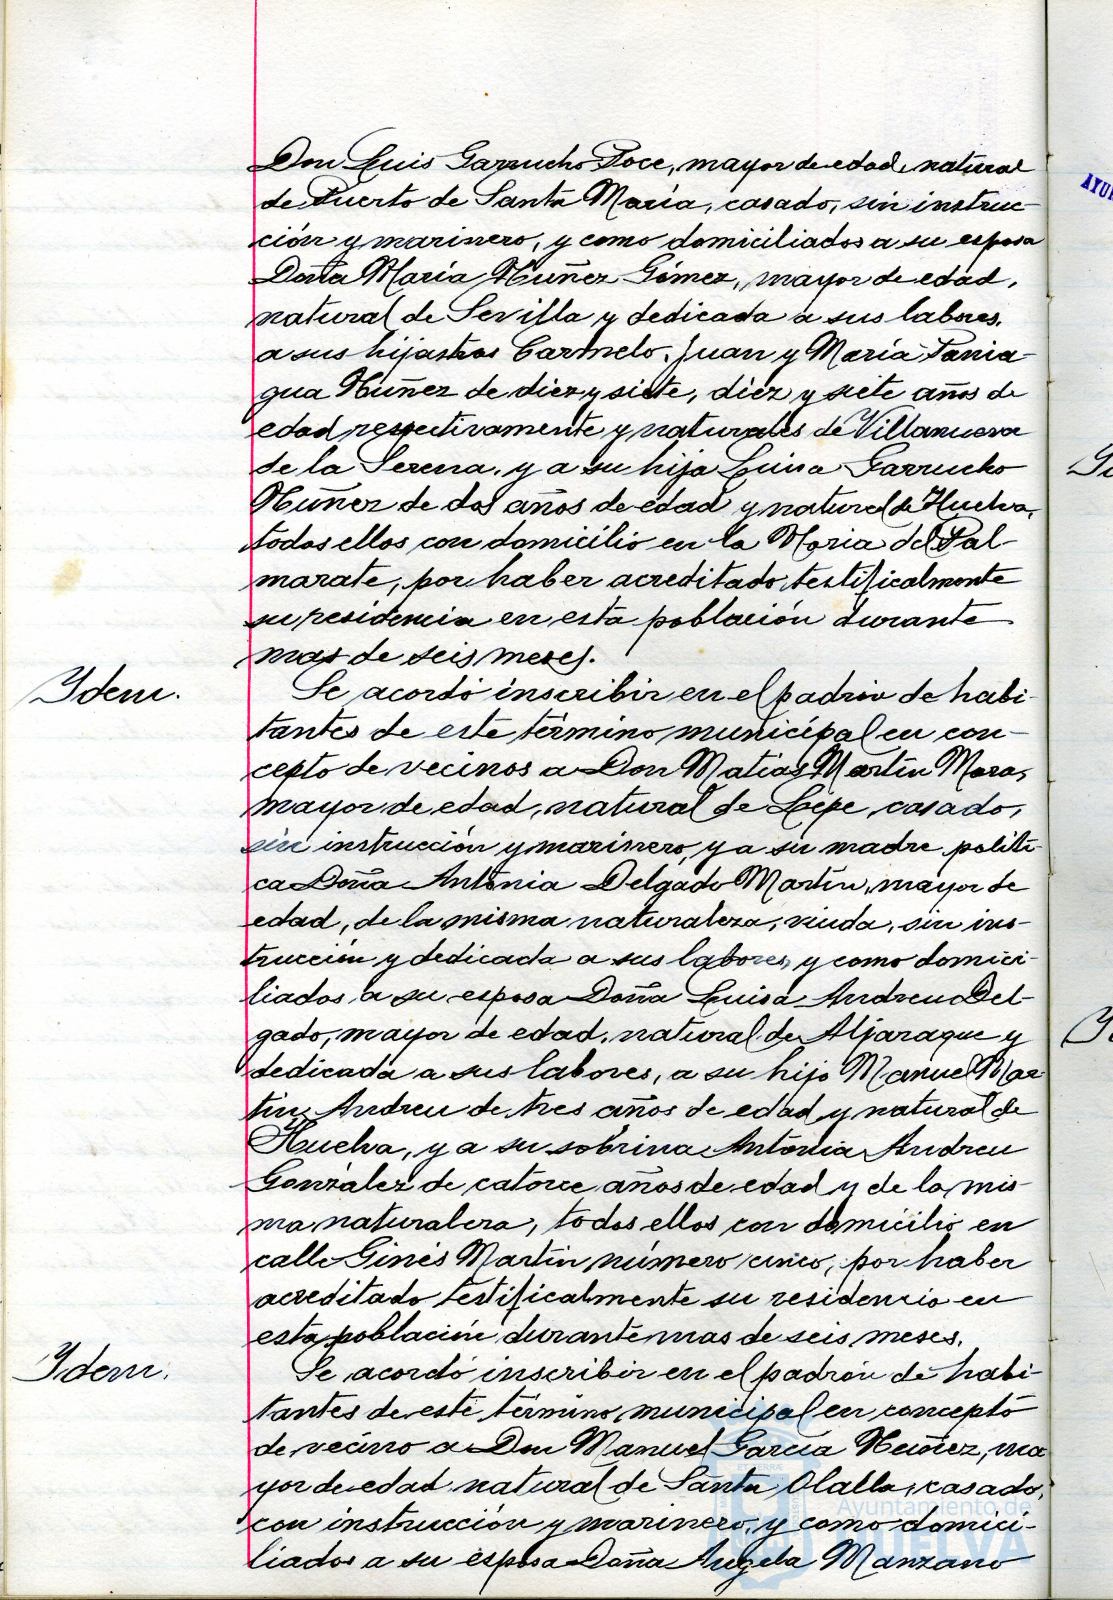 Don Luis Garrucho Toce, mayor de edad, natural
de Puerto de Santa María, casado, sin instruc-
ción y marinero, y como domiciliados a su esposa
Doña María Núñez Gómez, mayor de edad,
natural de Sevilla y dedicada a sus labores,
a sus hijastros Carmelo, Juan y María Pania-
gua Núñez de diez y siete, diez y siete años de
edad respectivamente y naturales de Villanueva
de la Serena, y a su hija Luisa Garrucho
Núñez de dos años de edad y natural de Huelva,
todos ellos con domicilio en la Noria del Pal-
marate, por haber acreditado testificalmente
su residencia en esta población durante
mas de seis meses.
Idem.
Se acordó inscribir en el padrón de habi-
tantes de este término municipal en con-
cepto de vecinos a Don Matías Martín Mora,
mayor de edad, natural de Lepe, casado,
sin instrucción y marinero, y a su madre políti-
ca Doña Antonia Delgado Martín, mayor de
edad, de la misma naturaleza, viuda, sin ins-
trucción y dedicada a sus labores, y como domici-
liados a su esposa Doña Luisa Andreu Del-
gado, mayor de edad, natural de Aljaraque y
dedicada a sus labores, a su hijo Manuel Mar
tín Andreu de tres años de edad y natural de
Huelva, y a su sobrina Antonia Andreu
González de catorce años de edad y de la mis-
ma naturaleza, todos ellos con domicilio en
calle Ginés Martín número cinco, por haber
acreditado testificalmente su residencia en
esta población durante mas de seis meses.
Idem.
Se acordó inscribir en el padrón de habi-
tantes de este término municipal en concepto
de vecino a Don Manuel García Núñez, ma
yor de edad natural de Santa Olalla, casado,
con instrucción y marinero, y como domici-
liados a su esposa Doña Angela Manzano
Ayuntamiento de
HUELVA